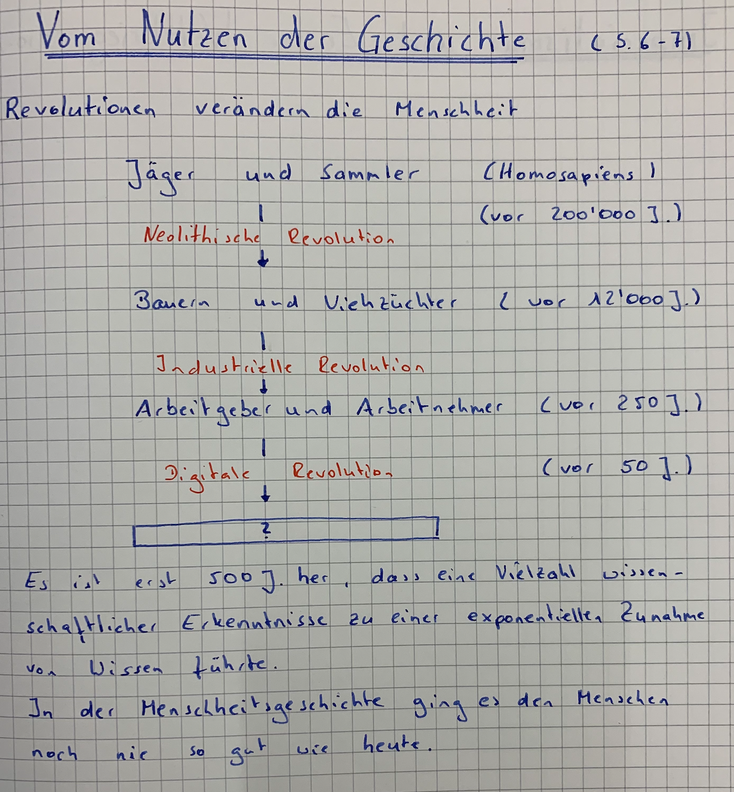 Vom Nutzen der Geschichte (S. 6-7)
Revolutionen verändern die Menschheit
Jäger und Sammler (Homosapiens)
(vor 200'000 J.)
Neolithische Revolution
Bauern und Viehzüchter (vor 12'000 J.)
Industrielle Revolution
Arbeitgeber und Arbeitnehmer (vor 250 J.)
Digitale Revolution (vor 50 J.)
?
Es ist erst 500 J. her, dass eine Vielzahl wissen-
schaftlicher Erkenntnisse zu einer exponentiellen Zunahme
von Wissen führte.
In der Menschheitsgeschichte ging es den Menschen
noch nie so gut wie heute.